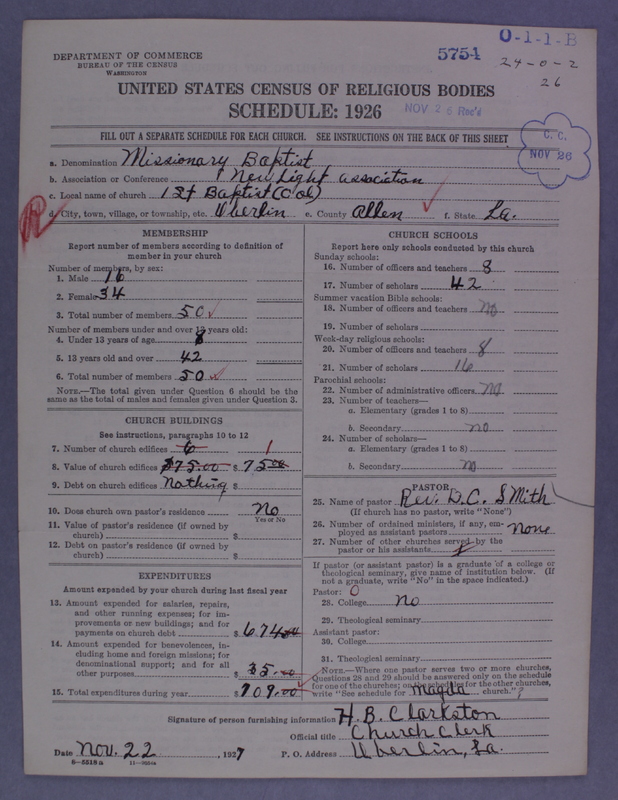 DEPARTMENT OF COMMERCE
BUREAU OF THE CENSUS
WASHINGTON
5754
O-1-1-B
24-0-2
26
UNITED STATES CENSUS OF RELIGIOUS BODIES
SCHEDULE: 1926
NOV 25 Rec'd
FILL OUT A SEPARATE SCHEDULE FOR EACH CHURCH. SEE INSTRUCTIONS ON THE BACK OF THIS SHEET
C. C.
NOV 26
a. Denomination Missionary Baptist
b. Association or Conference New Light association
c. Local name of church 1st Baptist (Col)
d. City, town, village, or township, etc. Oberlin e. County Allen f. State La.
MEMBERSHIP
Report number of members according to definition of
member in your church
Number of members, by sex:
1. Male 16
2. Female 34
3. Total number of members 50
Number of members under and over 13 years old:
4. Under 13 years of age 8
5. 13 years old and over 42
6. Total number of members 50
NOTE.—The total given under Question 6 should be
same as the total of males and females given under Question 3.
CHURCH BUILDINGS
See instructions, paragraphs 10 to 12
7. Number of church edifices 6 1
8. Value of church edifices $75.00 $ 75.00
9. Debt on church edifices Nothing $
10. Does church own pastor's residence No
Yes or No
11. Value of pastor's residence (if owned by
church) $
12. Debt on pastor's residence (if owned by
church) $
EXPENDITURES
Amount expended by your church during last fiscal year
13. Amount expended for salaries, repairs,
and other running expenses; for im-
provements or new buildings; and for
payments on church debt $ 674
14. Amount expended for benevolences, in-
cluding home and foreign missions; for
denominational support; and for all
other purposes $ 35.00
15. Total expenditures during year $ 709.00
CHURCH SCHOOLS
Report here only schools conducted by this church
Sunday schools:
16. Number of officers and teachers 8
17. Number of scholars 42
Summer vacation Bible schools:
18. Number of officers and teachers no
19. Number of scholars
Week-day religious schools:
20. Number of officers and teachers 8
21. Number of scholars 16
Parochial schools:
22. Number of administrative officers no
23. Number of teachers—
a. Elementary (grades 1 to 8)
b. Secondary no
24. Number of scholars—
a. Elementary (grades 1 to 8)
b. Secondary no
PASTOR
25. Name of pastor Rev. D. C. Smith
(If church has no pastor, write "None")
26. Number of ordained ministers, if any, em-
ployed as assistant pastors none
27. Number of other churches served by the
pastor or his assistants
If pastor (or assistant pastor) is a graduate of a college or
theological seminary, give name of institution below. (If
not a graduate, write "No" in the space indicated.)
Pastor: 0
28. College no
29. Theological seminary
Assistant pastor:
30. College
31. Theological seminary
NOTE.—Where one pastor serves two or more churches,
Questions 28 and 29 should be answered only on the schedule
for one of the churches; on the schedule for the other churches,
write "See schedule for Magda church."?
Signature of person furnishing information H. B. Clarkston
Official title Church Clerk
Date Nov. 22, 1927 P. O. Address Oberlin, La.
8-5518a